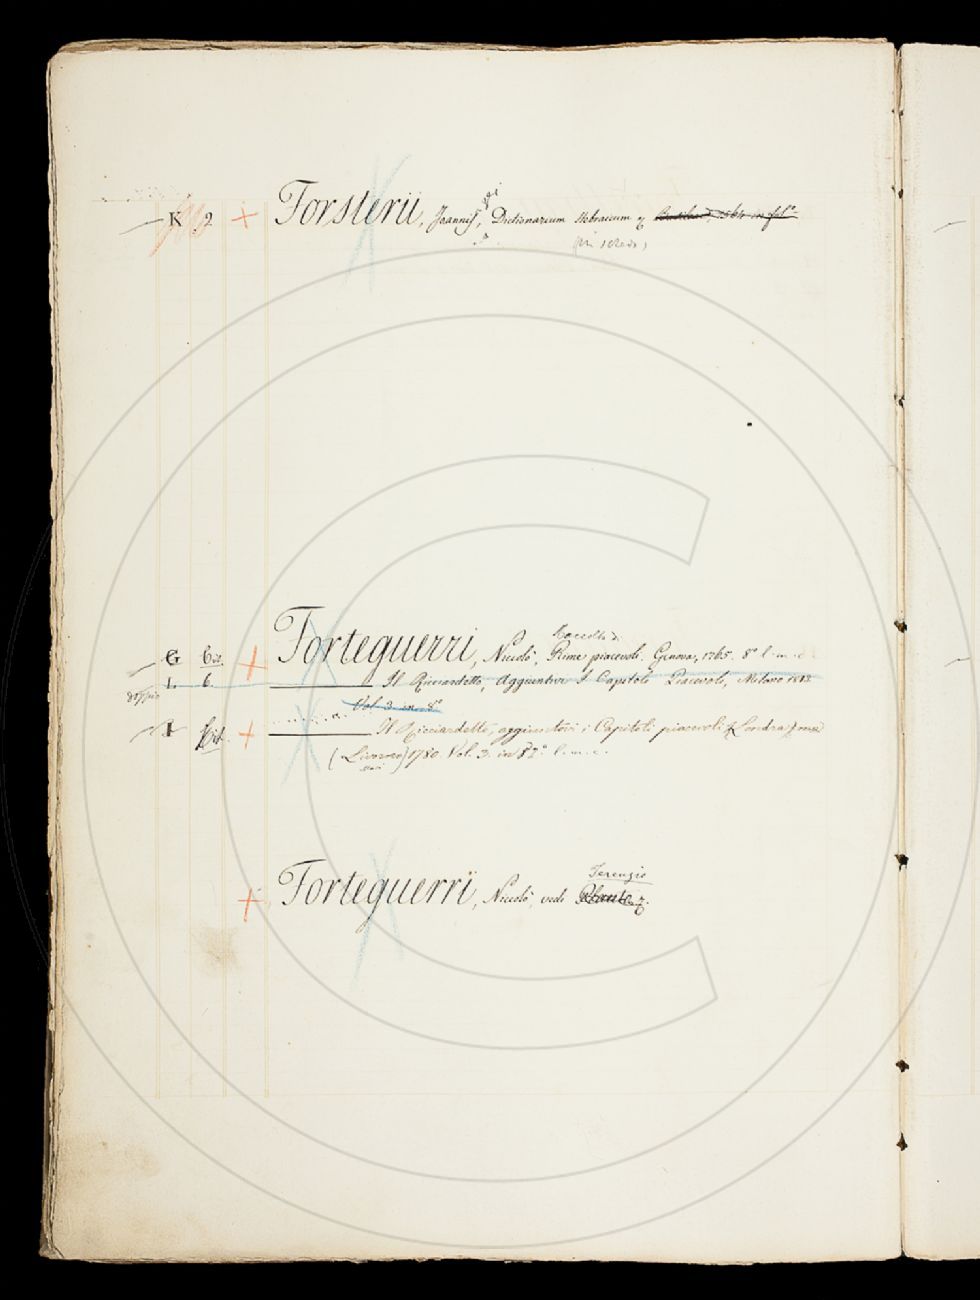 K 2 + Forsterii, Joannis, Dictionarium Hebraicum
Raccolta di
G Bis. + Forteguerri, Niccolò, Rime piacevoli. Genova, 1765. 8º
L. 6. Il Ricciardetto, Aggiuntivi I Capitoli Piacevoli, Milano 1813
doppio
Vol. 3 in 8º
+ Il Ricciardetto, aggiuntovi i Capitoli piacevoli Londra
(Livorno) 1780. Vol. 3. in
Terenzio
+ Forteguerri, Niccolò, vedi